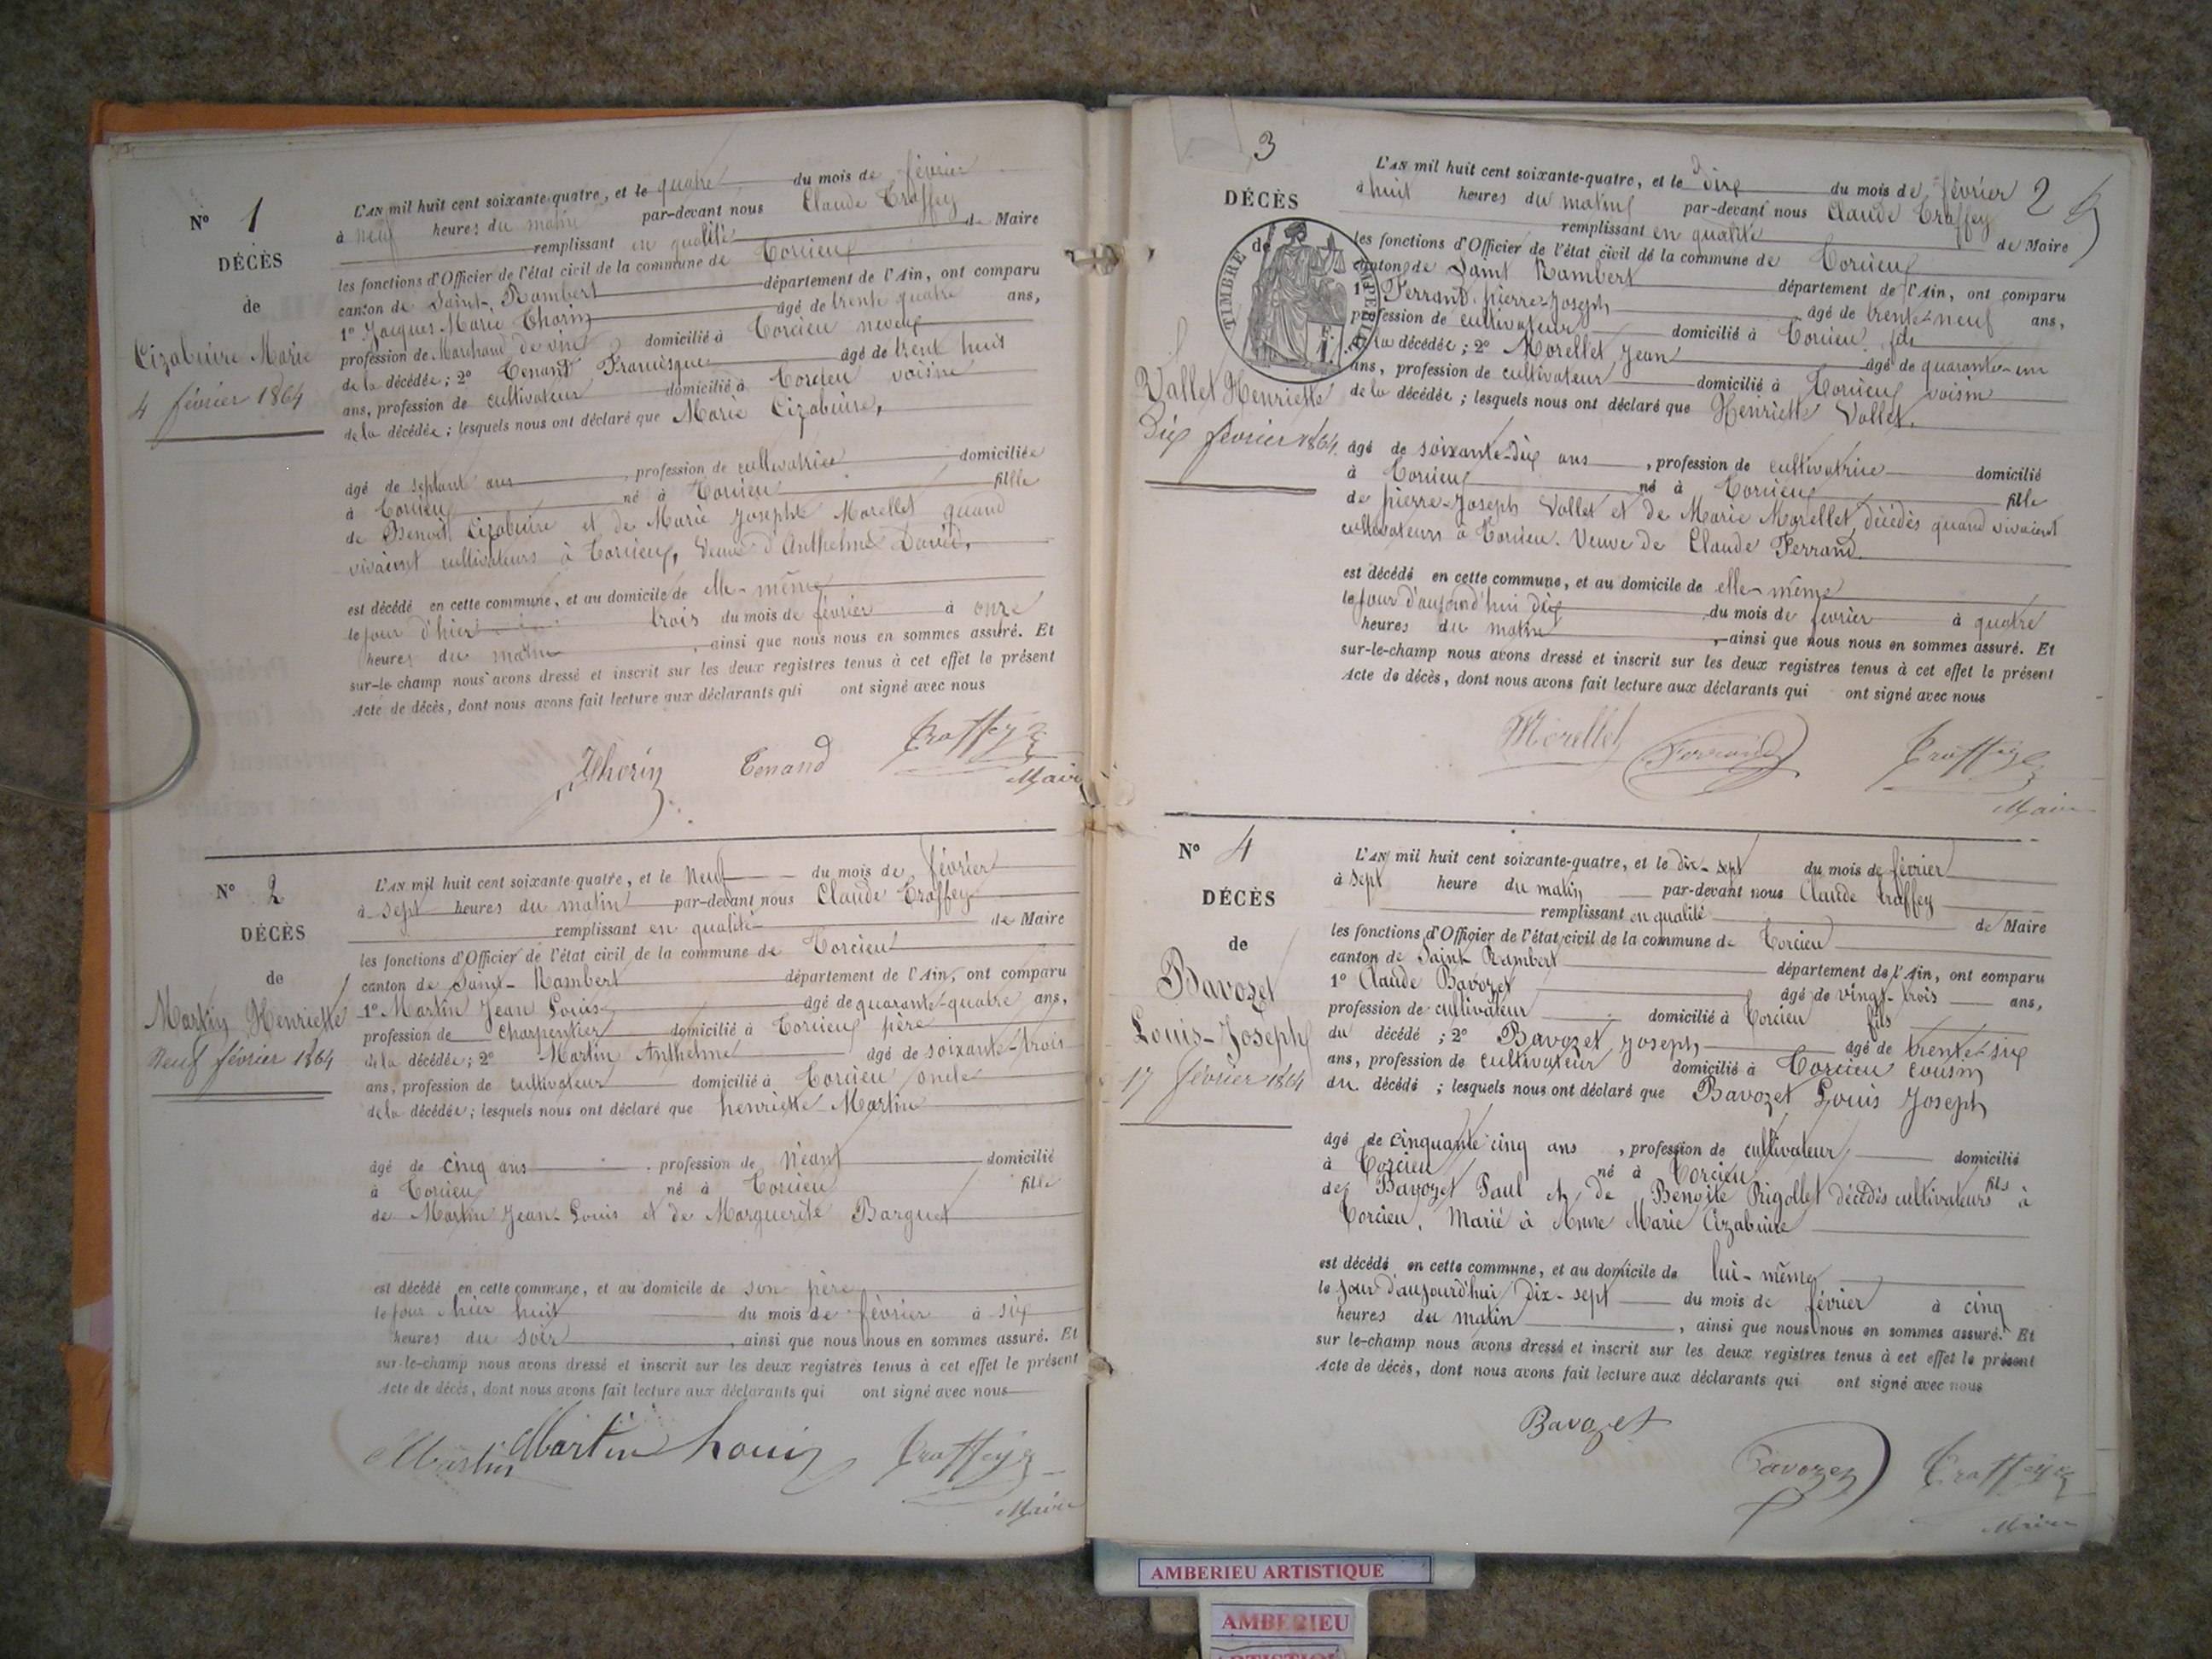 N° 1
DÉCÈS
de
Cizabuire Marie
4 février 1864
L'AN mil huit cent soixante-quatre, et le quatre du mois de février
à neuf heures du matin par-devant nous Claude Traffey
remplissant en qualité de Maire
les fonctions d'Officier de l'état civil de la commune de Torcieu
canton de Saint-Rambert département de l'Ain, ont comparu
1° Jacques Marie Thorin âgé de trente quatre ans,
profession de Marchand de vin domicilié à Torcieu neveu
de la décédée; 2° Tenant Francisque âgé de trent huit
ans, profession de cultivateur domicilié à Torcieu voisin
de la décédée; lesquels nous ont déclaré que Marie Cizabuire,
âgé de septant ans, profession de cultivatrice domiciliée
à Torcieu né à Torcieu fille
de Benoit Cizabuire et de Marie Josephte Morellet quand
vivaient cultivateurs à Torcieu, Veuve d'Anthelme David,
est décédé en cette commune, et au domicile de elle-même
le jour d'hier trois du mois de février à onze
heures du matin, ainsi que nous nous en sommes assuré. Et
sur-le-champ nous avons dressé et inscrit sur les deux registres tenus à cet effet le présent
Acte de décès, dont nous avons fait lecture aux déclarants qui ont signé avec nous
Thorin Tenand Traffey
Maire
N° 2
DÉCÈS
de
Martin Henriette
Neuf février 1864
L'AN mil huit cent soixante-quatre, et le Neuf du mois de février
à sept heures du matin par-devant nous Claude Traffey
remplissant en qualité de Maire
les fonctions d'Officier de l'état civil de la commune de Torcieu
canton de Saint-Rambert département de l'Ain, ont comparu
1° Martin Jean Louis âgé de quarante-quatre ans,
profession de charpentier domicilié à Torcieu père
de la décédée; 2° Martin Anthelme âgé de soixante-trois
ans, profession de cultivateur domicilié à Torcieu oncle
de la décédée; lesquels nous ont déclaré que henriette Martin
âgé de cinq ans, profession de Néant domicilié
à Torcieu né à Torcieu fille
de Martin Jean-Louis et de Marguerite Barguet
est décédé en cette commune, et au domicile de son père
le jour hier huit du mois de février à six
heures du soir, ainsi que nous nous en sommes assuré. Et
sur-le-champ nous avons dressé et inscrit sur les deux registres tenus à cet effet le présent
Acte de décès, dont nous avons fait lecture aux déclarants qui ont signé avec nous
Martin Martin Louis Traffey
Maire
3
DÉCÈS
de
TIMBRE IMPERIAL
Vallet Henriette
Dix février 1864.
L'AN mil huit cent soixante-quatre, et le dix du mois de février 2
à huit heures du matin par-devant nous Claude Traffey
remplissant en qualité de Maire
les fonctions d'Officier de l'état civil de la commune de Torcieu
canton de Saint Rambert département de l'Ain, ont comparu
1° Ferrand pierre-Joseph âgé de trente-neuf ans,
profession de cultivateur domicilié à Torcieu fils
de la décédée; 2° Morellet Jean âgé de quarante-un
ans, profession de cultivateur domicilié à Torcieu voisin
de la décédée; lesquels nous ont déclaré que Henriette Vallet.
âgé de soixante-dix ans, profession de cultivatrice domicilié
à Torcieu né à Torcieu fille
de pierre-Joseph Vallet et de Marie Morellet, décédés quand vivaient
cultivateurs à Torcieu. Veuve de Claude Ferrand.
est décédé en cette commune, et au domicile de elle-même
le jour d'aujourd'hui dix du mois de février à quatre
heures du matin, ainsi que nous nous en sommes assuré. Et
sur-le-champ nous avons dressé et inscrit sur les deux registres tenus à cet effet le présent
Acte de décès, dont nous avons fait lecture aux déclarants qui ont signé avec nous
Morellet Ferrand Traffey
Maire
N° 4
DÉCÈS
de
Bavozet
Louis-Joseph
17 février 1864
L'AN mil huit cent soixante-quatre, et le dix-sept du mois de février
à sept heure du matin par-devant nous Claude Traffey
remplissant en qualité de Maire
les fonctions d'Officier de l'état civil de la commune de Torcieu
canton de Saint-Rambert département de l'Ain, ont comparu
1° Claude Bavozet âgé de vingt-trois ans,
profession de cultivateur domicilié à Torcieu fils
du décédé; 2° Bavozet Joseph âgé de trente-six
ans, profession de cultivateur domicilié à Torcieu cousin
du décédé; lesquels nous ont déclaré que Bavozet Louis Joseph
âgé de cinquante cinq ans, profession de cultivateur domicilié
à Torcieu né à Torcieu fils
de Bavozet Paul et de Benoite Prigollet décédés cultivateurs à
Torcieu, Marié à Anne Marie Cizabuire
est décédé en cette commune, et au domicile de lui-même
le jour d'aujourd'hui dix-sept du mois de février à cinq
heures du matin, ainsi que nous nous en sommes assuré. Et
sur le-champ nous avons dressé et inscrit sur les deux registres tenus à cet effet le présent
Acte de décès, dont nous avons fait lecture aux déclarants qui ont signé avec nous
Bavozet
Bavozet Traffey
Maire
AMBERIEU ARTISTIQUE
AMBERIEU
ARTISTIQUE